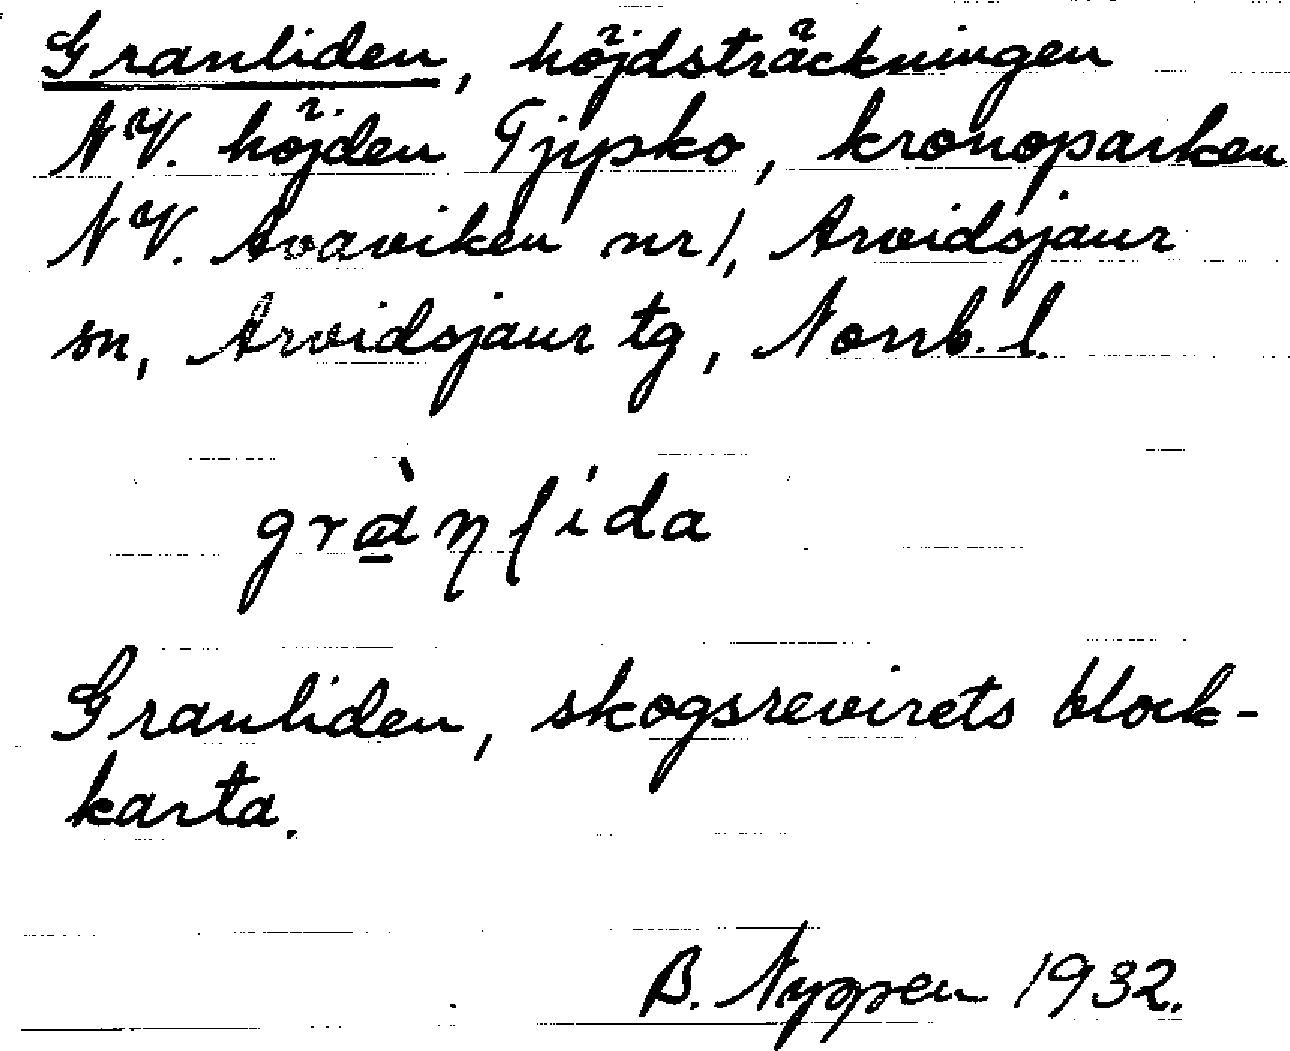 Granliden, höjdsträckningen
NV. höjden Tjypsko, kronoparken
NV. Avaviken nr 1, Arvidsjaur
sn, Arvidsjaur tg, Norrb. l.
grànlida
Granliden, skogsrevirets block-
karta.
B. Nyppen 1932.